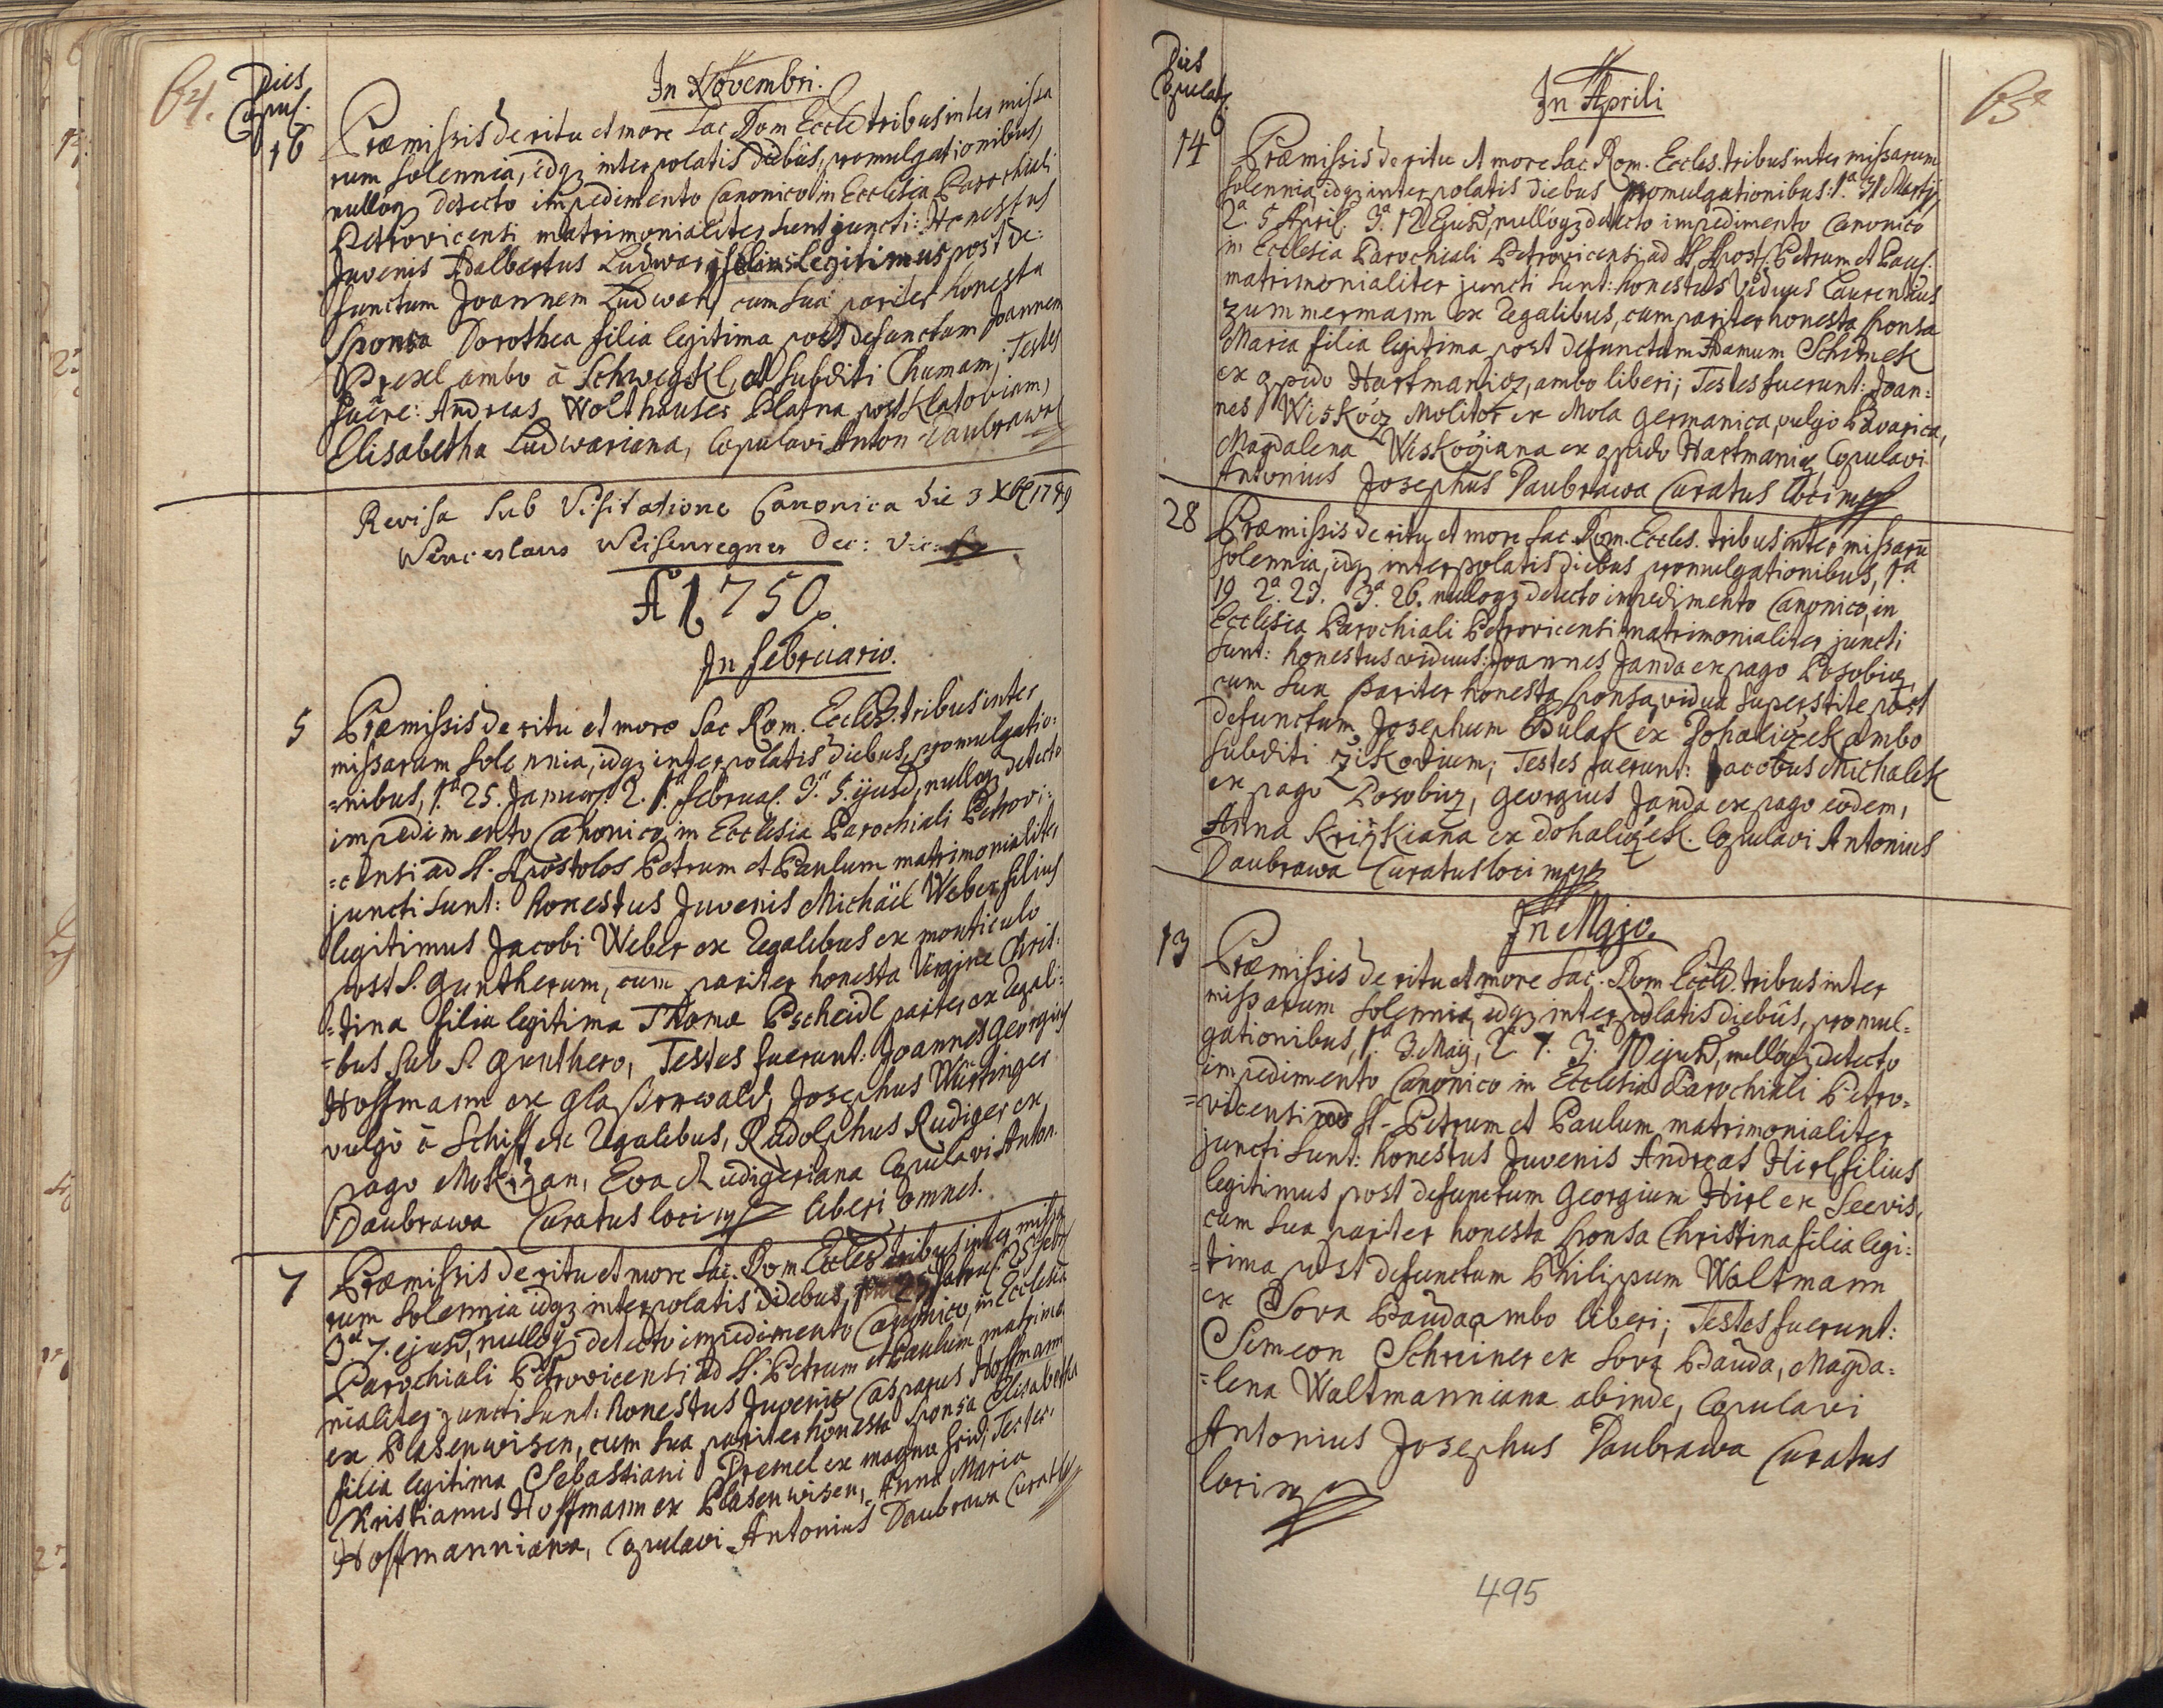 64.
Dies
Copul.
In Novembri.
16
Præmissis de ritu et more Sac Rom Eccle tribus inter missa
rum solennia, idqz interpolatis diebus, promulgationibus,
nulloqz detecto impedimento Canonico in Ecclesia Parochiali
Petrovicensi matrimonialiter sunt juncti: Honestus
Juvenis Adalbertus Ludwar filius Legitimus post de:
functum Joannem Ludwar, cum sua pariter honesta
Sponsa Dorothea filia legitima post defunctum Joannem
Prexl ambo à Schwegskl, et subditi Chumam; Testes
fuêre: Andreas Wolthauser Platna post Klatoviam,
Elisabetha Ludwariana, Copulavi Anton Daubrawa
Revisa sub Visitatione Canonica die 3 Xbr 1749
Wenceslaus Weisenregner Dec: Vic:
Aō 1750.
In februario.
5
Præmissis de ritu et more Sac Rom. Eccles. tribus inter
missarum solennia, idqz interpolatis diebus, promulgatio:
=nibus, 1ª 25. Januar. 2. 1ª februar. 3ª. 5. ejusd, nulloqz detecto
impedimento Canonico, in Ecclesia Parochiali Petrovi:
=censi ad SS. Apostolos Petrum et Paulum matrimonialiter
juncti sunt: honestus Juvenis Michäel Weber filius
legitimus Jacobi Weber ex Regalibus ex monticulo
post S. Guntherum, cum pariter honesta Virgine Chris:
=tina filia legitima Thomæ Pscheidl pariter ex Regali:
=bus sub S. Gunthero, Testes fuerunt: Joannes Georgius
Hoffmann ex Glaßerwald, Josephus Würtinger
vulgò à Schiff ex Regalibus, Rudolphus Rudiger ex
pago Mokrzan, Eva Rudigeriana Copulavi Anton.
Daubrawa Curatus loci mp liberi omnes.
7
Præmissis de ritu et more Sac. Rom. Eccles tribus inter missa
rum solennia idqz interpolatis diebus,
3ª 7. ejusd, nulloqz detecto impedimento Canonico, in Ecclesia
Parochiali Petrovicensi ad SS. Petrum et Paulum matrimo
nialiter juncti sunt: honestus Juvenis Casparus Hoffmann
ex Plasenwisen, cum sua pariter honesta sponsa Elisabetha
filia legitima Sebastiani Dremel ex magno Heid; Testes:
Kristianus Hoffmann ex Plasenwisen, Anna Maria
Hoffmanniana, Copulavi Antonius Daubrawa Curatus
Dies
Copulat.
In Aprili
65
14
Præmissis de ritu et more Sac. Rom. Eccles. tribus inter missarum
solennia, idqz interpolatis diebus promulgationibus: 1ª. 31 Martij
2ª. 5 April. 3ª. 12 Ejusd, nulloqz detecto impedimento Canonico
in Ecclesia Parochiali Petrovicensi ad SS Apost. Petrum et Paul.
matrimonialiter juncti sunt: honestus Viduus Laurentius
zummermann ex Regalibus, cum pariter honesta sponsa
Maria filia legitima post defunctum Adamum Schimek
ex opido Hartmanicz, ambo liberi; Testes fuerunt: Joan:
nes Wiskocz Molitor ex Mola Germanica, vulgo Bavarica,
Magdalena Wiskocziana ex opido Hartmanicz Copulavi
Antonius Josephus Daubrawa Curatus loci mp
28
Præmissis de ritu et more Sac. Rom. Eccles. tribus inter missarū
solennia, idqz interpolatis diebus promulgationibus, 1ª
19 2ª. 23. 3ª. 26. nulloqz detecto impedimento Canonico, in
Ecclesia Parochiali Petrovicensi matrimonialiter juncti
sunt: honestus viduus: Joannes Janda ex pago Posobicz,
cum sua pariter honesta sponsa, vidua superstite post
defunctum Josephum Bulak ex Dohaliczek ambo
subditi Zikovium; Testes fuerunt: Jacobus Michalek
ex pago Posobicz, Georgius Janda ex pago eodem,
Anna Krizkiana ex Dohaliczek. Copulavi Antonius
Daubrawa Curatus loci mp
In Majo.
13
Præmissis de ritu et more Sac. Rom Eccles. tribus inter
missarum solennia, idqz interpolatis diebus, promul=
gationibus, 1ª. 3. Maij, 2 7. 3. 10 ejusd, nulloqz detecto
impedimento Canonico in Ecclesia Parochiali Petro=
=vicensi ad SS. Petrum et Paulum matrimonialiter
juncti sunt: honestus Juvenis Andreas Hirl, filius
legitimus post defunctum Georgium Hirl ex Seevis,
cum sua pariter honesta sponsa Christina filia legi:
=tima post defunctum Philippum Waltmann
ex Sova Bauda ambo liberi; Testes fuerunt:
Simeon Schreiner ex Sova Bauda, Magda=
=lena Waltmanniana abinde, Copulavi
Antonius Josephus Daubrawa Curatus
loci mp
495